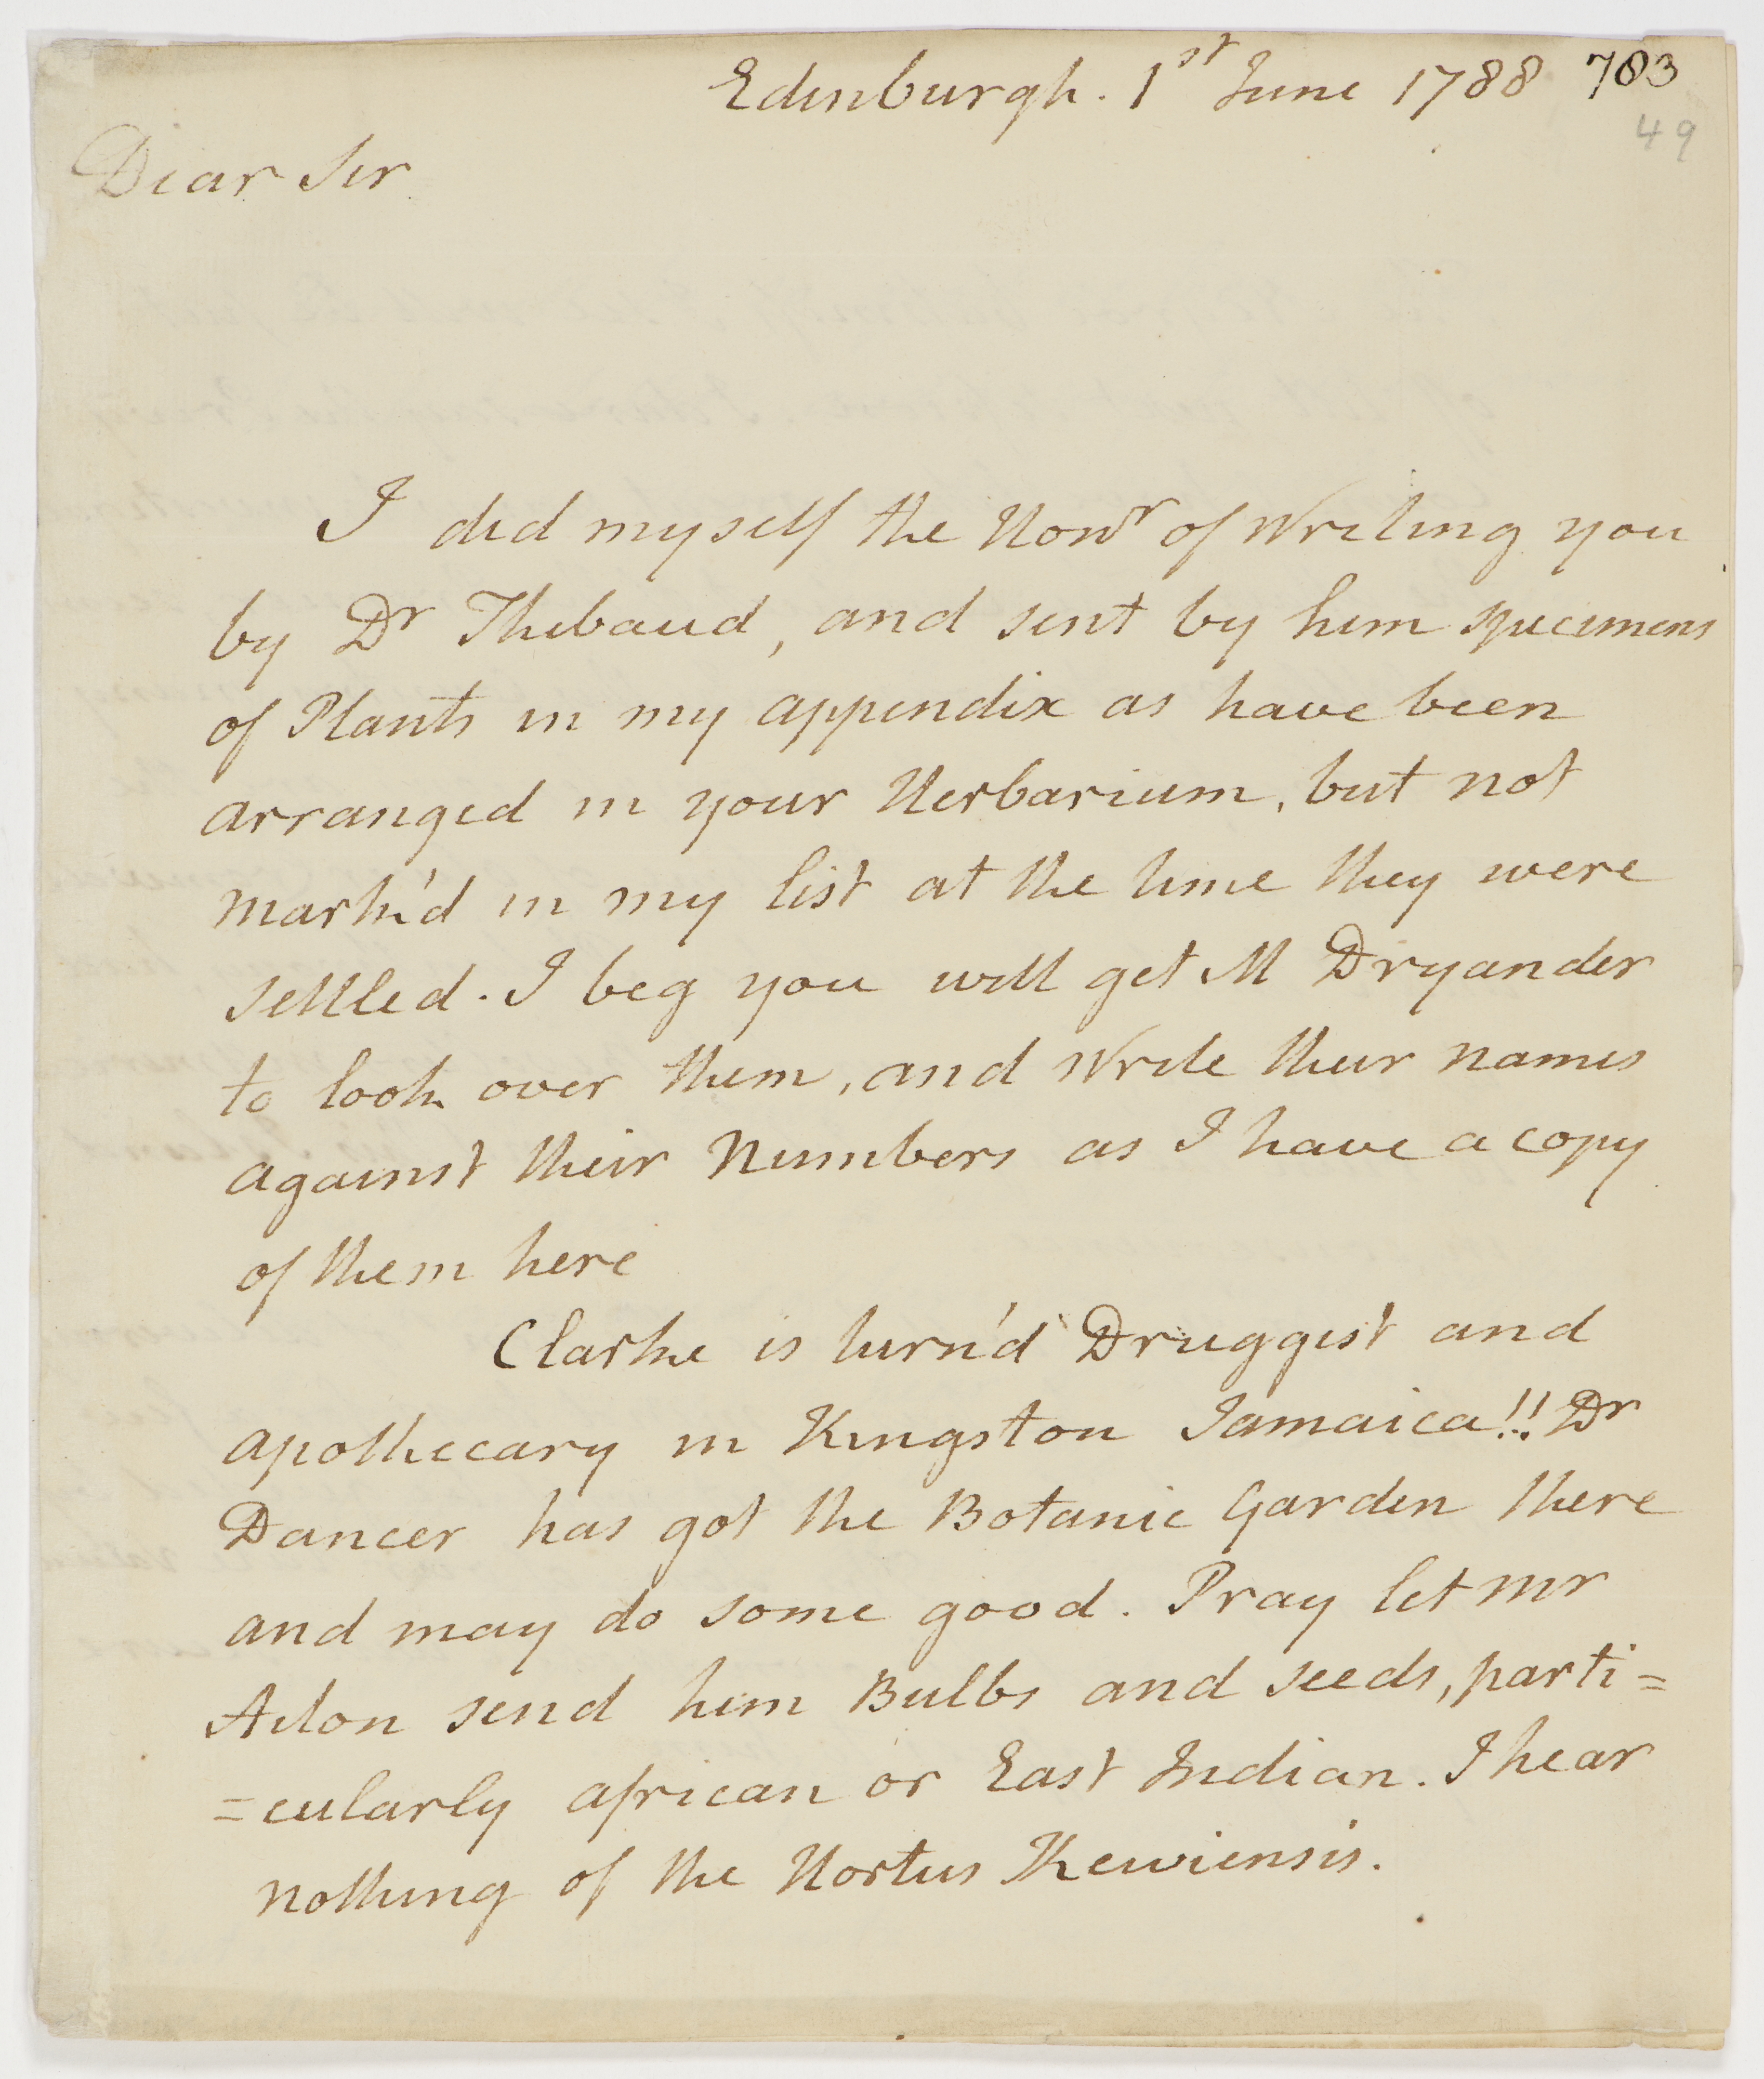 Edinburgh. 1st June 1788 703
49
Dear Sir
I did myself the Honr of Writing you
by Dr Thibaud, and sent by him specimens
of Plants in my appendix as have been
arranged in your Herbarium, but not
mark'd in my list at the time they were
settled. I beg you will get M Dryander
to look over them, and Write their names
against their Numbers as I have a copy
of them here
Clarke is turn'd Druggist and
apothecary in Kingston Jamaica!! Dr
Dancer has got the Botanic Garden there
and may do some good. Pray let mr
Aiton send him Bulbs and seeds, parti=
=cularly african or East Indian. I hear
nothing of the Hortus Kewiensis.